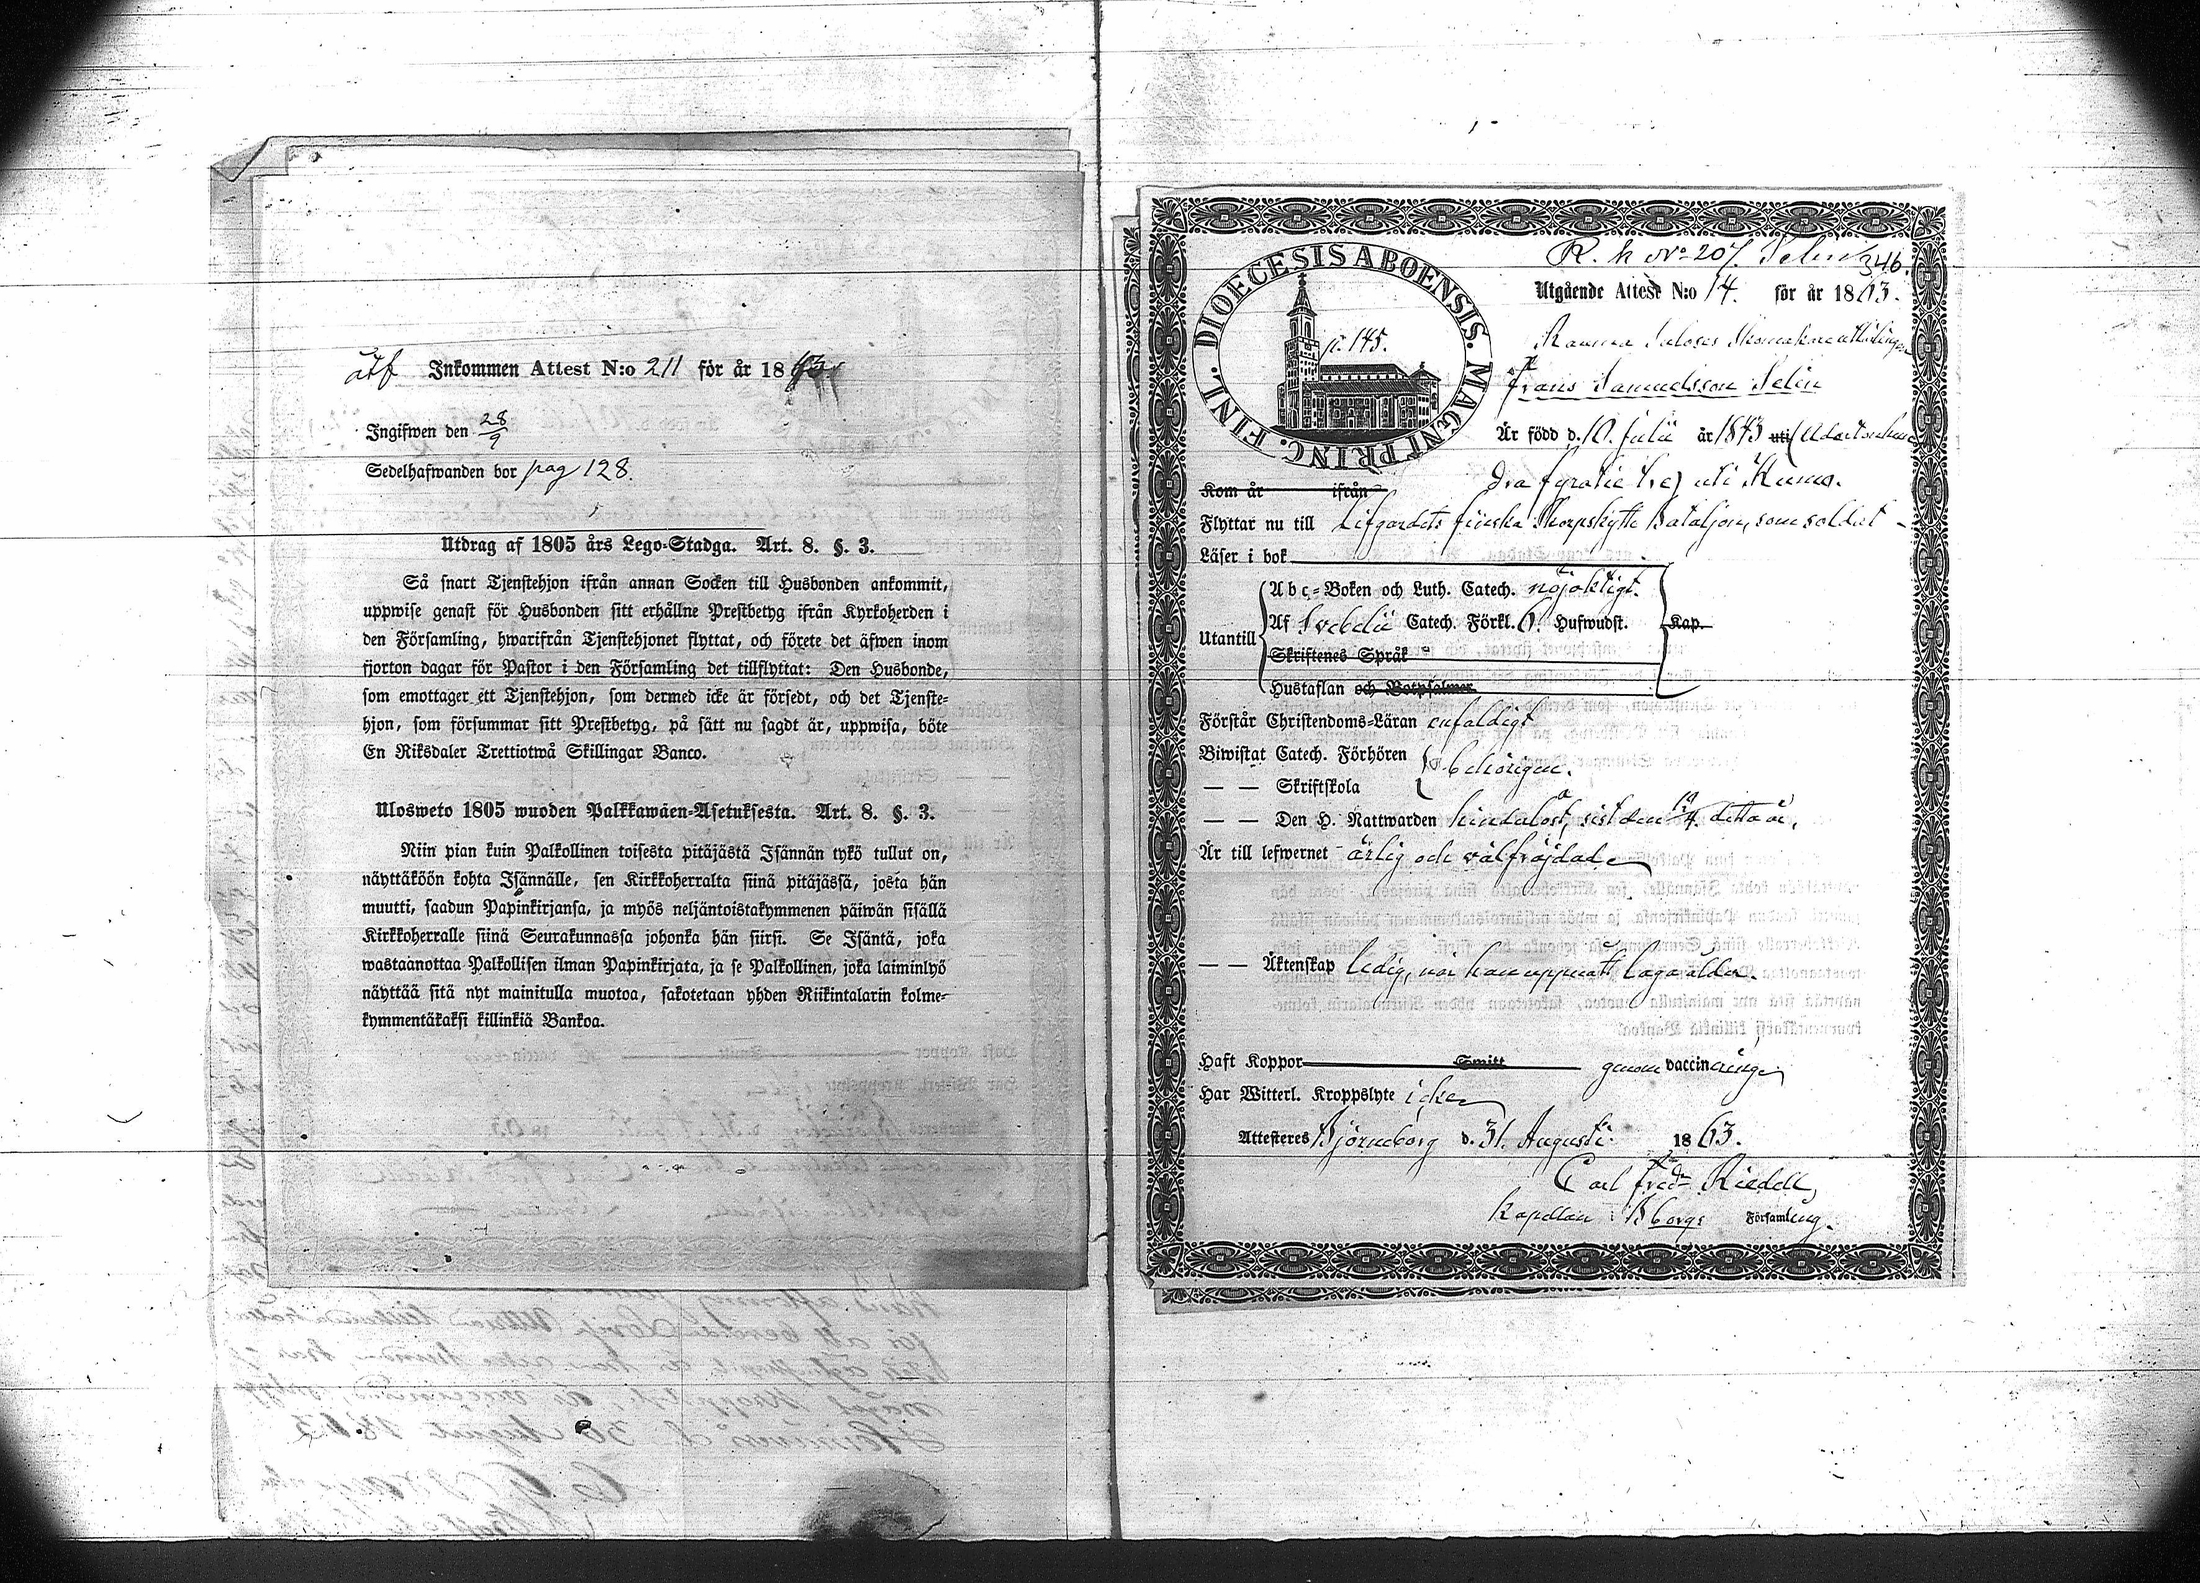 åtf Inkommen Attest N:o 211 för år 1863
Ingifwen den 28/9
Sedelhafwanden bor pag 128.
Utdrag af 1805 års Lego-Stadga. Art. 8. §. 3.
Så snart Tjenstehjon ifrån annan Socken till Husbonden ankommit,
uppwise genast för Husbonden sitt erhållne Prestbetyg ifrån Kyrkoherden i
den Församling, hwarifrån Tjenstehjonet flyttat, och förete det äfwen inom
fjorton dagar för Pastor i den Församling det tillflyttat: Den Husbonde,
som emottager ett Tjenstehjon, som dermed icke är försedt, och det Tjenste-
hjon, som försummar sitt Prestbetyg, på sätt nu sagdt är, uppwisa, böte
En Riksdaler Trettiotwå Skillingar Banco.
Ulosweto 1805 wuoden Palkkawäen-Asetuksesta. Art. 8. §. 3.
Niin pian kuin Palkollinen toisesta pitäjästä Isännän tykö tullut on,
näyttäköön kohta Isännälle, sen Kirkkoherralta siinä pitäjässä, josta hän
muutti, saadun Papinkirjansa, ja myös neljäntoistakymmenen päiwän sisällä
Kirkkoherralle siinä Seurakunnassa johonka hän siirsi. Se Isäntä, joka
wastaanottaa Palkollisen ilman Papinkirjata, ja se Palkollinen, joka laiminlyö
näyttää sitä nyt mainitulla muotoa, sakotetaan yhden Riikintalarin kolme-
kymmentäkaksi killinkiä Bankoa.
R. k No 207 Selin 346.
FINL. DIOECESIS ABOENSIS. MAGNI PRINC.
p. 145.
Utgående Attest N:o 14. för år 1863.
Frans Samuelsson Selin
Är född d. 10 Julii år 1843 uti
uti Kumo.
Kom år ifrån
Flyttar nu till Lifgardets finska Skarpskytte Bataljon, som soldat -
Läser i bok
Abc-Boken och Luth. Catech. nöjaktigt.
Utantill
Af Svebelii Catech. Förkl. 6. Hufwudst.
Kap.
Skriftenes Språk
Hustaflan och Botpsalmer
Förstår Christendoms-Läran enfaldigt
Biwistat Catech. Förhören
behörigen.
— — Skriftskola
— — Den H. Nattwarden hindalöst, sist den 19/4 detta år,
Är till lefwernet ärlig och välfräjdad
— — Äktenskap ledig, när han uppnått laga ålder.
Haft Koppor Smitt genom vaccinering
Har Witterl. Kroppslyte icke
Attesteres Björneborg d. 31. Augusti 1863.
Carl Fredr Riedell,
Kapellan i Bborgs Församling.